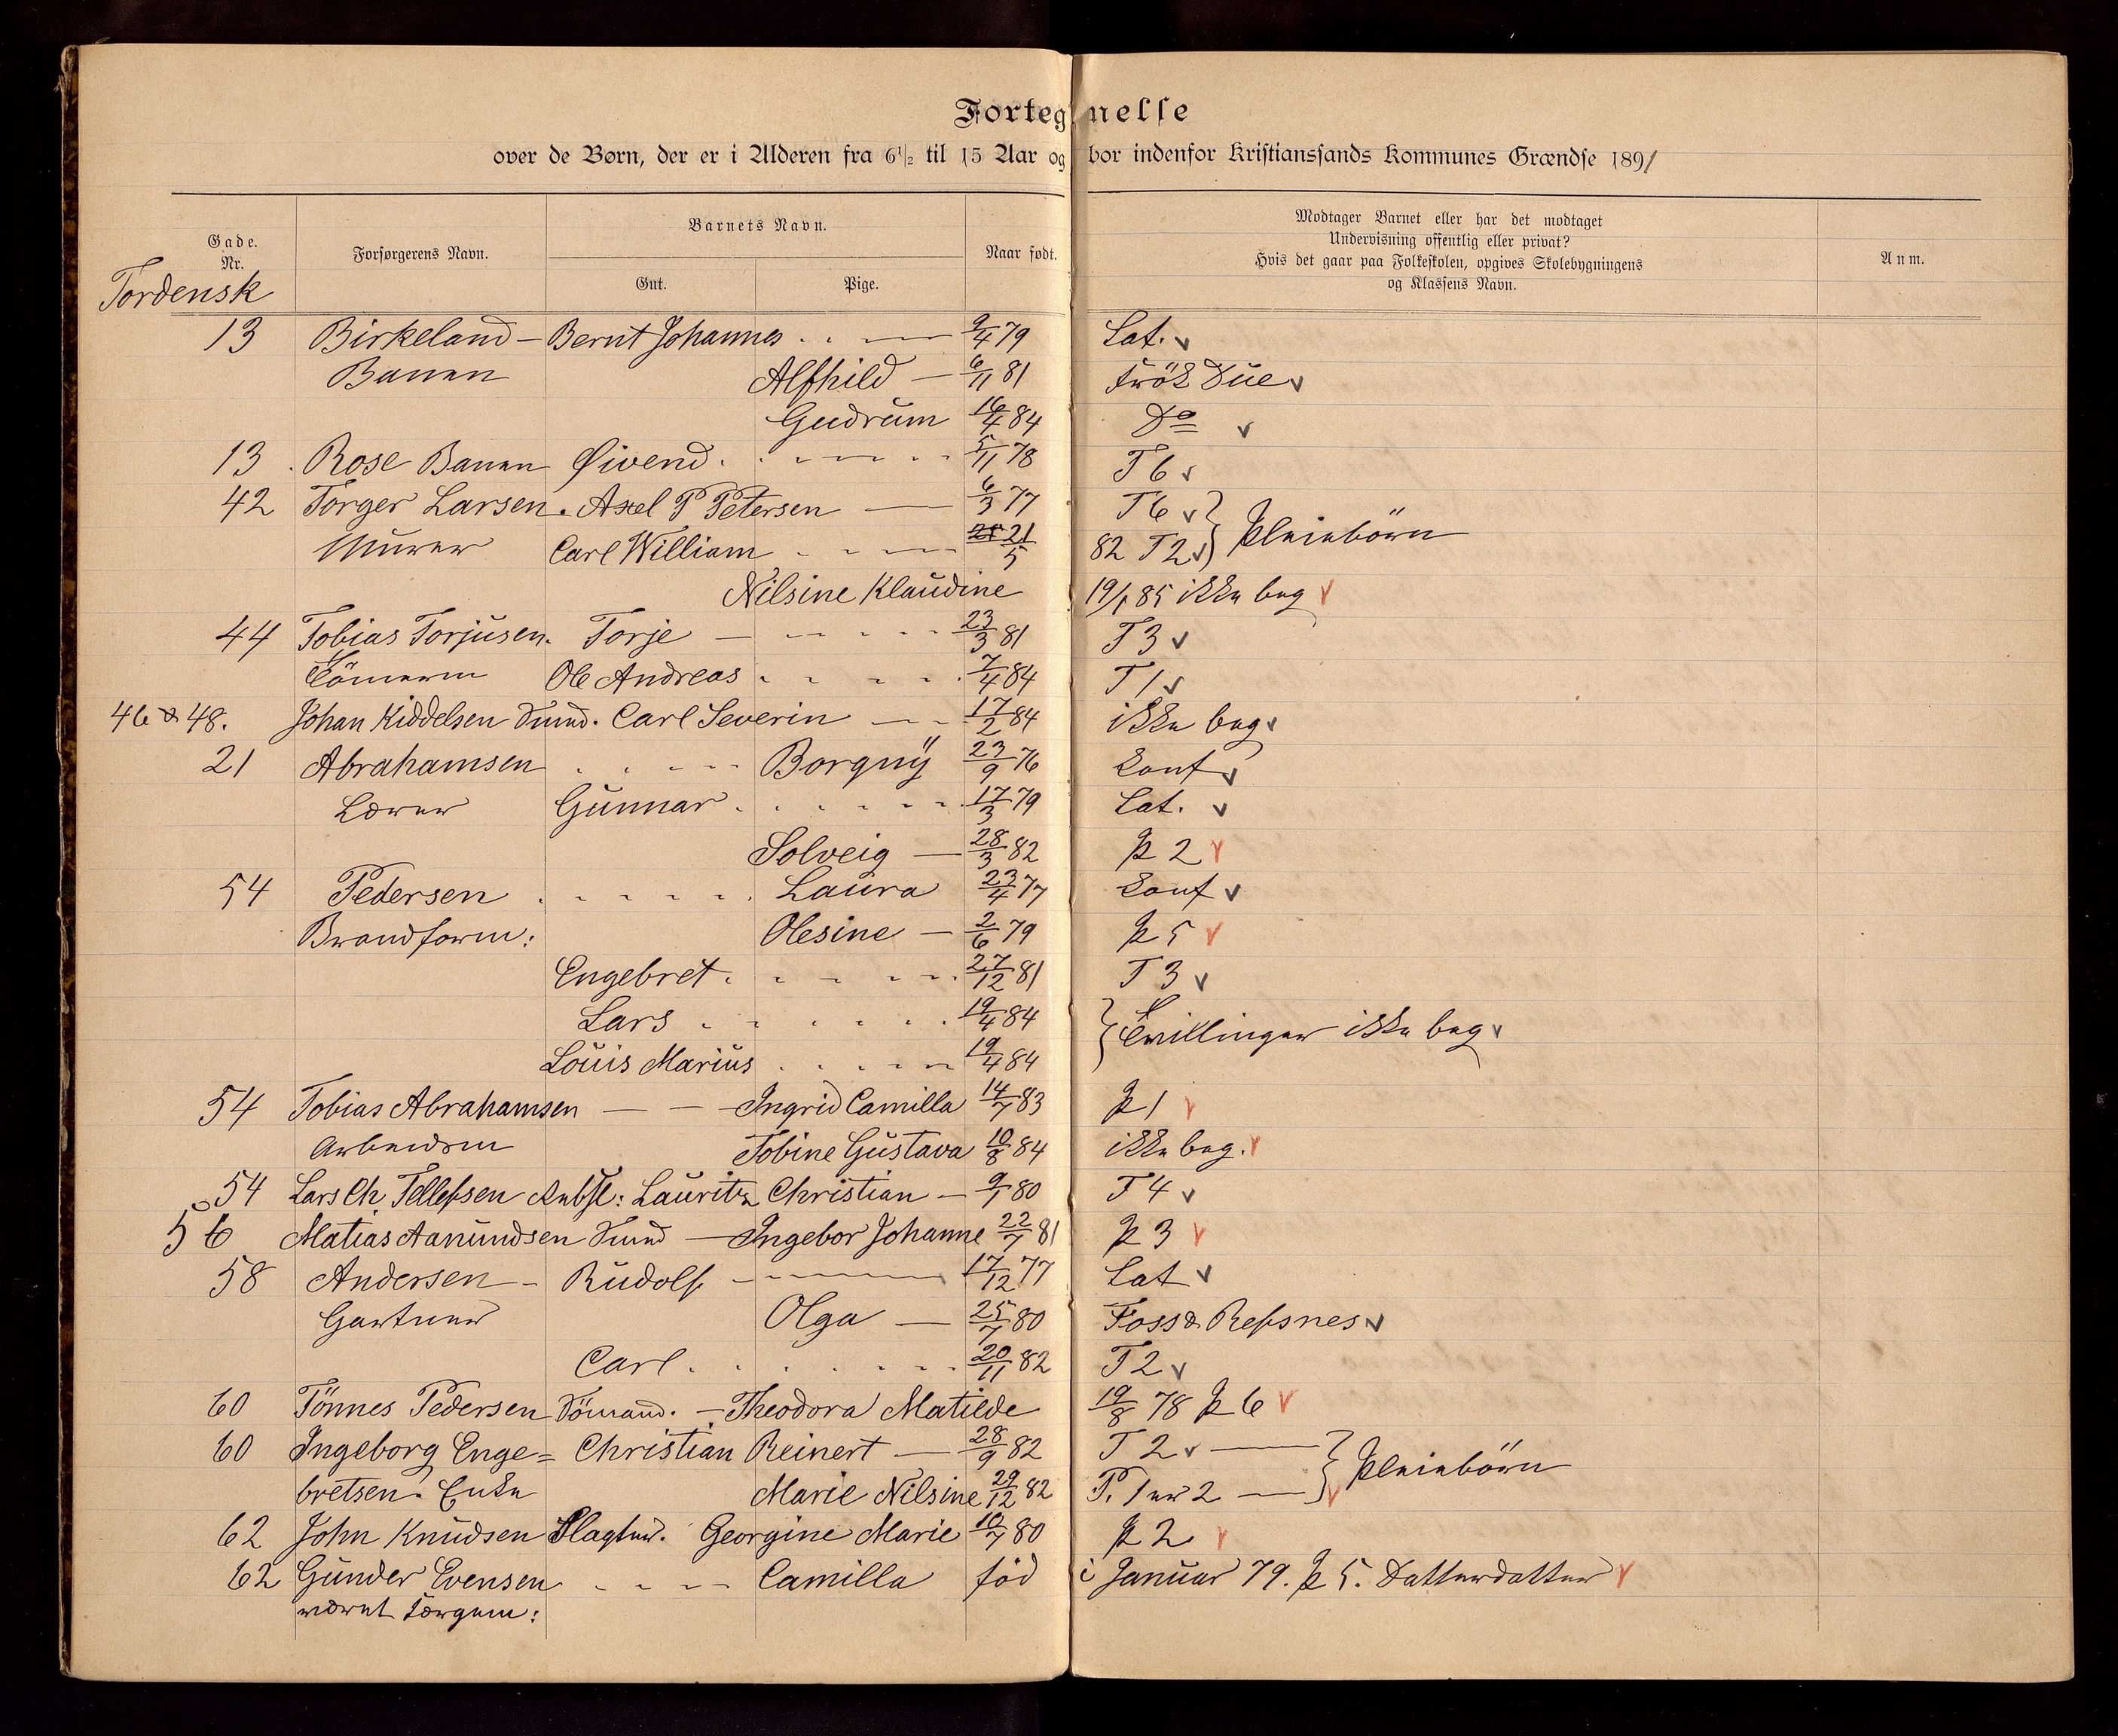 Fortegnelse
over de Børn, der er i Alderen fra 6½ til 15 Aar og bor indenfor Kristianssands Kommunes Grændse 1891
Gade. Nr. Forsørgerens Navn. Barnets Navn. Gut. Pige. Naar født. Modtager Barnet eller har det modtaget Undervisning offentlig eller privat? Hvis det gaar paa Folkeskolen, opgives Skolebygningens og Klassens Navn. Anm.
Tordensk
13 Birkeland - Bernt Johannes 9/4 79 Lat. v
Banen Alfhild 6/11 81 Frök Due v
Gudrum 16/4 84 Do v
13 Rose Banen Øivend 5/11 78 T 6 v
42 Torger Larsen. Axel P Petersen 6/3 77 T 6 v
Murer Carl William 21/5 82 T 2 v } Pleiebörn
Nilsine Klaudine 19/1 85 ikke beg v
44 Tobias Torjusen. Torje 23/3 81 T 3 v
Tömerm Ole Andreas 7/4 84 T 1 v
46 & 48. Johan Kiddelsen Smed. Carl Severin 17/2 84 ikke beg v
21 Abrahamsen Borgny 23/9 76 Konf v
Lærer Gunnar 17/3 79 Lat. v
Solveig 28/3 82 P 2 v
54 Pedersen Laura 23/4 77 Konf v
Brandform: Olesine 2/6 79 P 5 v
Engebret 27/12 81 T 3 v
Lars 19/4 84 } Tvillinger ikke beg v
Louis Marius 19/4 84
54 Tobias Abrahamsen Ingrid Camilla 14/7 83 P 1 v
Arbeidsm Tobine Gustava 10/8 84 ikke beg. v
54 Lars Ch. Tellefsen Lauritz Christian 9/1 80 T 4 v
56 Matias Aanundsen Smed Ingebor Johanne 22/7 81 P 3 v
58 Andersen - Rudolf 17/12 77 Lat v
Gartner Olga 25/7 80 Foss & Refsnes v
Carl 20/11 82 T 2 v
60 Tönnes Pedersen Sömand. - Theodora Matilde 19/8 78 P 6 v
60 Ingeborg Enge= Christian Reinert 28/9 82 T 2 v
bretsen. Enke Marie Nilsine 29/12 82 P. 1 er 2 v } Pleiebörn
62 John Knudsen Slagter. Georgine Marie 10/7 80 P 2 v
62 Gunder Evensen Camilla föd i Januar 79. P 5. Datterdatter v